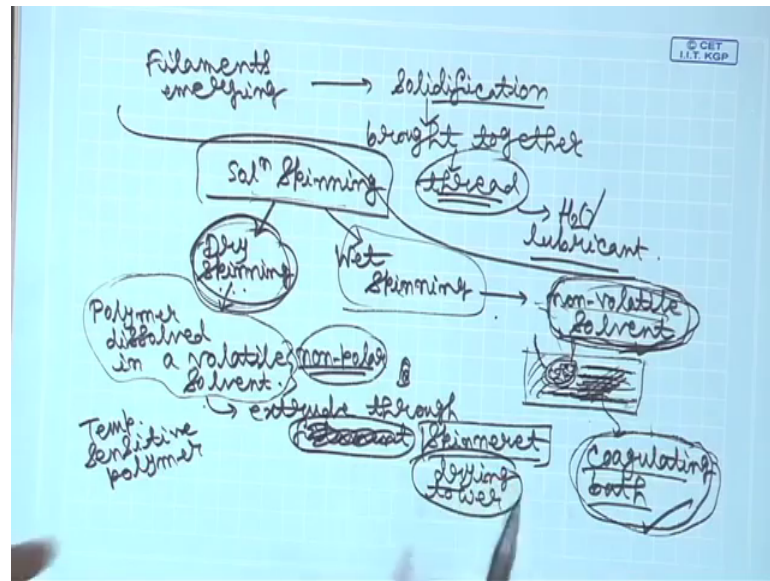 © CET
I.I.T. KGP
Filaments
emerging → Solidification
brought together
thread
→ H₂O/
lubricant.
Solⁿ Spinning
Dry
Spinning
Wet
Spinning → non-volatile
Solvent
Polymer
dissolved
in a volatile
Solvent.
non-polar
→ extrude through
Spinneret
drying
tower
Temp.
Sensitive
polymer
Coagulating
bath